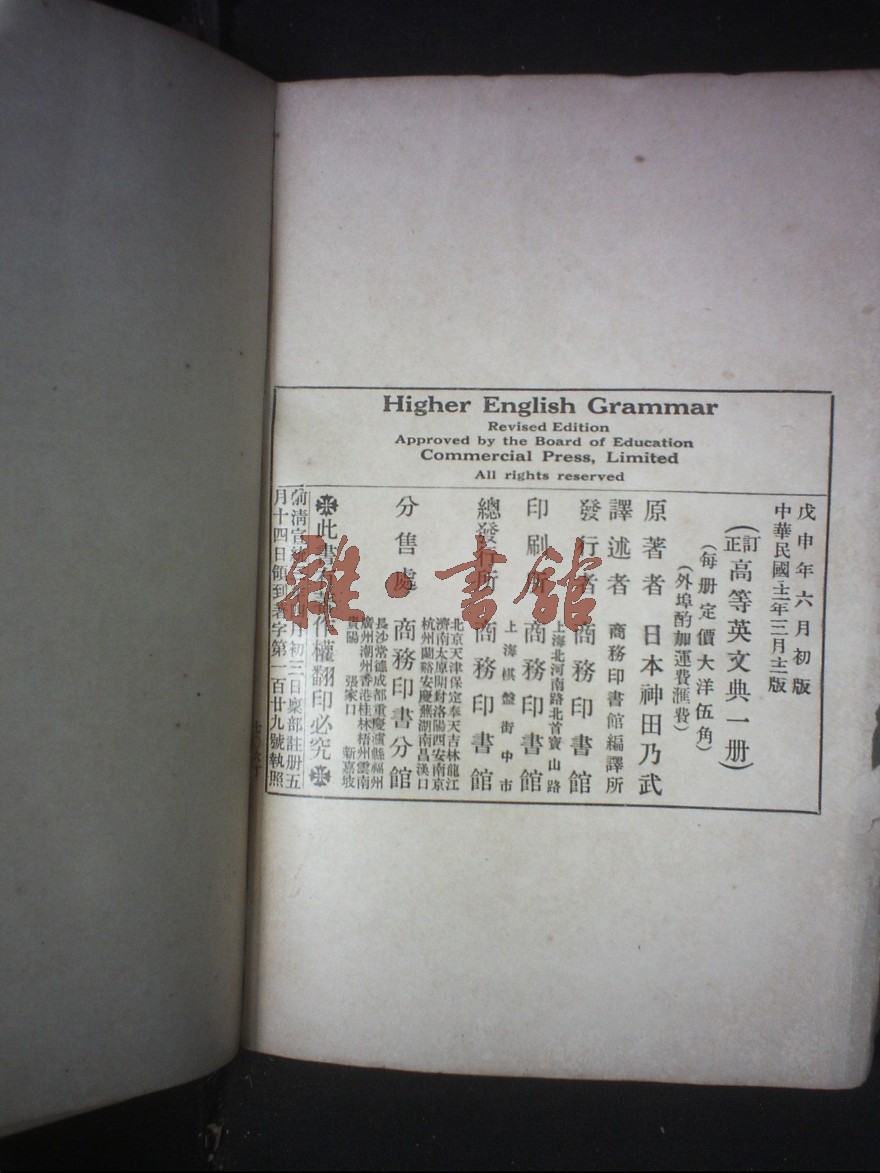 Higher English Grammar
Revised Edition
Approved by the Board of Education
Commercial Press, Limited
All rights reserved
戊申年六月初版
中華民國十二年三月十二版
(訂正高等英文典一册)
(每册定價大洋伍角)
(外埠酌加運費滙費)
原著者 日本神田乃武
譯述者 商務印書館編譯所
發行者 商務印書館
上海北河南路北首寶山路
印刷所 商務印書館
上海棋盤街中市
總發行所 商務印書館
北京天津保定奉天吉林龍江
濟南太原開封洛陽西安南京
杭州蘭谿安慶蕪湖南昌漢口
分售處 商務印書分館
長沙常德成都重慶瀘縣福州
廣州潮州香港桂林梧州雲南
貴陽 張家口 新嘉坡
此書有著作權翻印必究
前清宣 月初三日稟部註册五
月十四日領到著字第一百廿九號執照
雜·書館